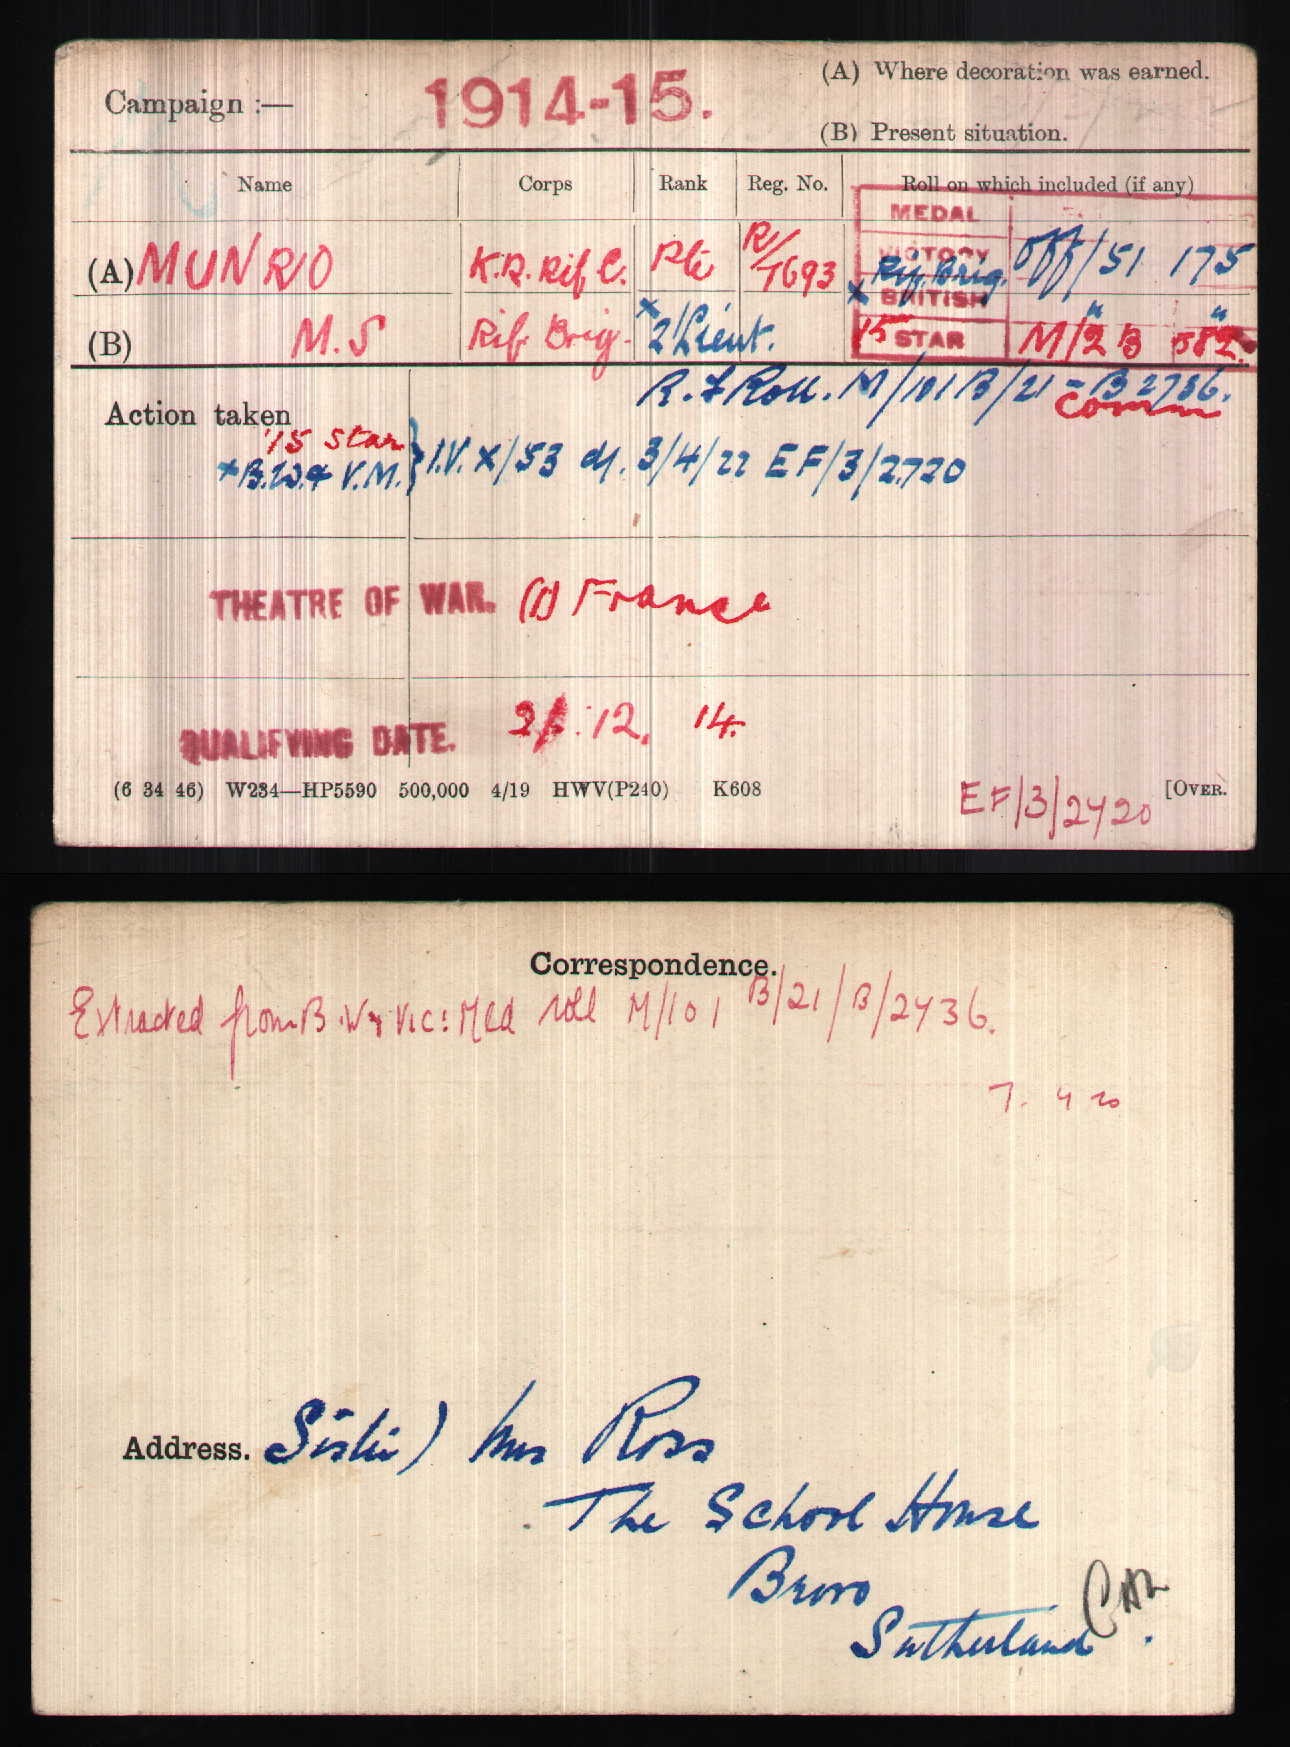 Campaign :— 1914-15. (A) Where decoration was earned.
(B) Present situation.
Name Corps Rank Reg. No. Roll on which included (if any)
MEDAL
(A) MUNRO K.R. Rif C. Pte R/7693 VICTORY x Rif. Brig. Off/51 175
BRITISH " "
(B) M.S Rif Brig. x 2/Lieut. 15 STAR M/2 B 582.
Action taken R.F Roll. M/101B/21 - B2736.
Comm
'15 Star
x B.W.& V.M. } I.V. X/53 d/. 3/4/22 EF/3/2720
THEATRE OF WAR. (1) France
QUALIFYING DATE. .12. 14.
(6 34 46) W234—HP5590 500,000 4/19 HWV(P240) K608 [OVER.
EF/3/2720
Correspondence.
Extracted from B.W & Vic: Med roll M/101 B/21/B/2736.
7. 4 20
Address. Sister) Mrs Ross
The School House
Brora
Sutherland.